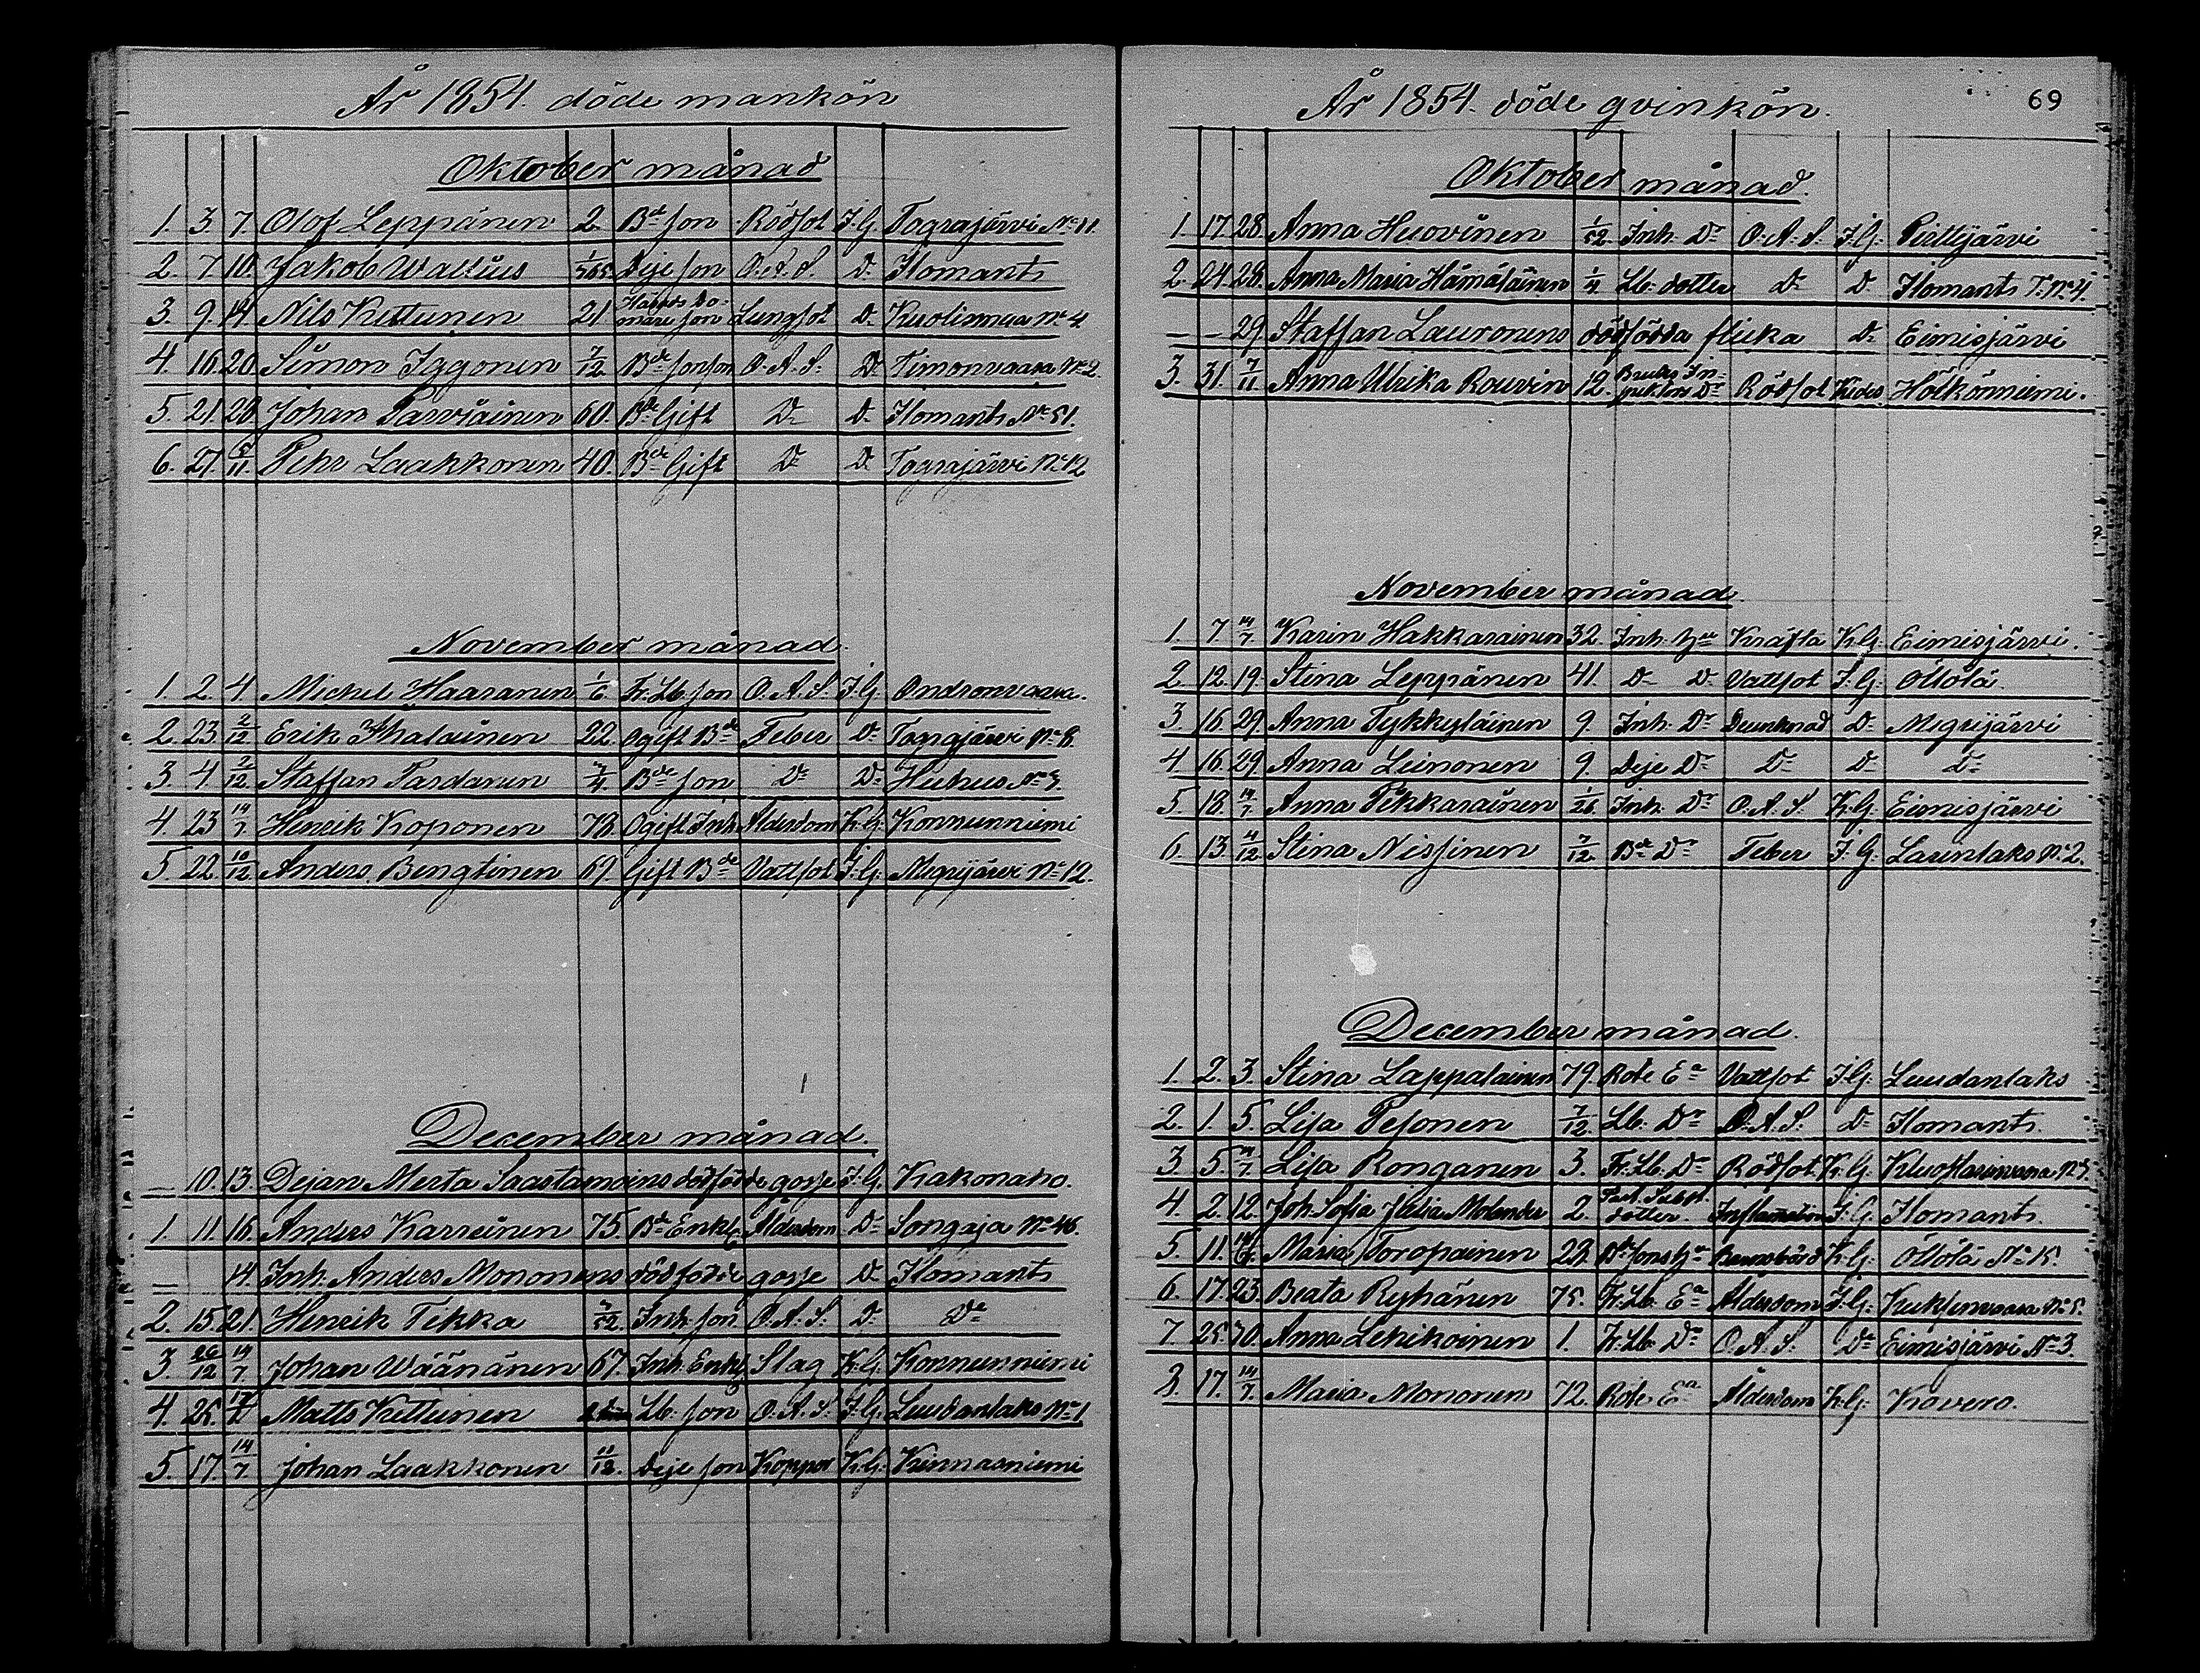 År 1854. döde mankön
Oktober månad
1. 3. 7. Olof Leppänen 2. Bd son Rödsot I.G. Tograjärvi No 11.
2. 7. 10. Jakob Wallius 1/365 Deje son O.A.S. Do Ilomants
3. 9. 14. Nils Kettunen 21 Härads Domare son Lungsot Do Kuolismaa No 4.
4. 16. 20. Simon Iggonen 7/12 Bde sonson O.A.S. Do Timonvaara No 2.
5. 21. 28. Johan Parviainen 60. Bde Gift Do Do Ilomants No 51.
6. 27. 5/11. Pehr Laakkonen 40. Bde Gift Do Do Tograjärvi No 12
November månad.
1. 2. 4. Michel Haaranen 1/6 Fr. Lb. son O.A.S. I.G. Ondronvaara.
2. 23. 2/12 Erik Ihalainen 22. Ogift Bde Feber Do Tograjärvi No 8.
3. 4. 2/12. Staffan Pardanen 3/4. Bde son Do Do Huhus No 3.
4. 23 14/7. Henrik Koponen 78. Ogift Inh. Ålderdom K.G. Konnunniemi
5. 22. 10/12 Anders Bengtinen 69. Gift Bde Vattsot I.G. Megrijärvi No 12.
December månad.
— 10. 13. Dejan Merta Saastamoins dödfödde gosse I.G. Kakonaho.
1. 11. 16. Anders Karreinen 75. Bde Enkl. Ålderdom Do Songaja No 46.
— 14. Inh. Anders Mononens dödfödde gosse Do Ilomants
2. 15. 21. Henrik Tekka 3/52. Inh. son O.A.S. Do Do
3. 26/12 14/7. Johan Wäänänen 67. Inh. Enkl. Slag K.G. Konnunniemi
4. 25. Matts Kettunen Lb. son O.A.S. I.G. Luudanlaks No 1
5. 17. 14/7 Johan Laakkonen 11/12. Deje son Koppor K.G. Kinnasniemi
År 1854. döde qvinkön.
69
Oktober månad.
1. 17. 28. Anna Huovinen 1/52 Inh. Dr O.A.S. I.G. Piilijärvi
2. 24. 28. Anna Maria Hämäläinen 1/4. Lb. dotter Do Do Ilomants T. No 4.
— — 29. Staffan Lauronens dödfödda flicka Do Eimisjärvi
3. 31. 7/11. Anna Ulrika Rouvin 12. Bruks Inspektors Dr Rödsot Kides Hölkönniemi.
November månad.
1. 7. 14/7 Karin Hakkarainen 32. Inh. hu Kräfta K.G. Eimisjärvi.
2. 12. 19. Stina Leppänen 41. Do Do Vattsot I.G. Öllölä.
3 16. 29. Anna Tykkyläinen 9. Inh. Dr Drunknad Do Megrijärvi
4. 16. 29. Anna Leinonen 9. Deje Dr Do Do Do
5 18. 14/7. Anna Pikkarainen 1/26. Inh. Dr O.A.S. K.G. Eimisjärvi
6. 13. 4/12. Stina Nissinen 7/12. Bde Dr Feber I.G. Larenlaks No 2.
December månad.
1. 2. 3. Stina Lappalainen 79. Rote Ea Vattsot I.G. Luudanlaks
2. 1. 5. Lisa Pesonen 7/12. Lb. Dr O.A.S. Do Ilomants.
3 5. 14/7 Lisa Ronganen 3. Fr. Lb. Dr Rödsot K.G. No 3.
4. 2. 12. Joh. Sofia Molander 2. Past. Subst. dotter Inflamation I.G. Ilomants.
5. 11. Maria Toropainen 29. Bde sons hu Barnsbörd K.G. Öllölä No 15.
6. 17. 23. Beata Ryhänen 75. Fr. Lb. Ea Ålderdom I.G. Kuuksenvaara No 5.
7. 25. 30. Anna Lehikoinen 1. Fr. Lb. Dr O.A.S. Do Eimisjärvi No 3.
8. 17. 14/7. Maria Mononen 72. Rote Ea Ålderdom K.G. Kovero.